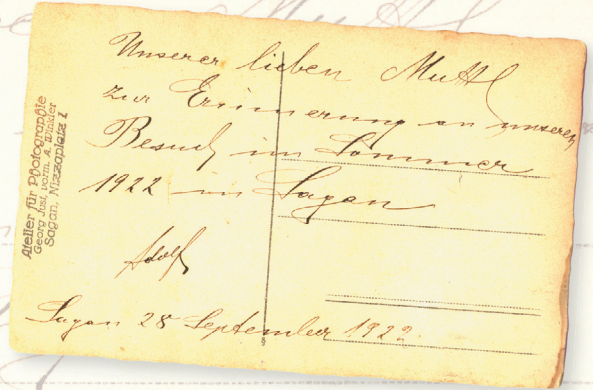 Unserer lieben Muttl
zur Erinnerung an unseren
Besuch im Sommer
1922 in Sagan
Adolf
Sagan 28 September 1922.
Atelier für Photographie
Georg Just, vorm. A. Winkler
Sagan, Nizzaplatz 1